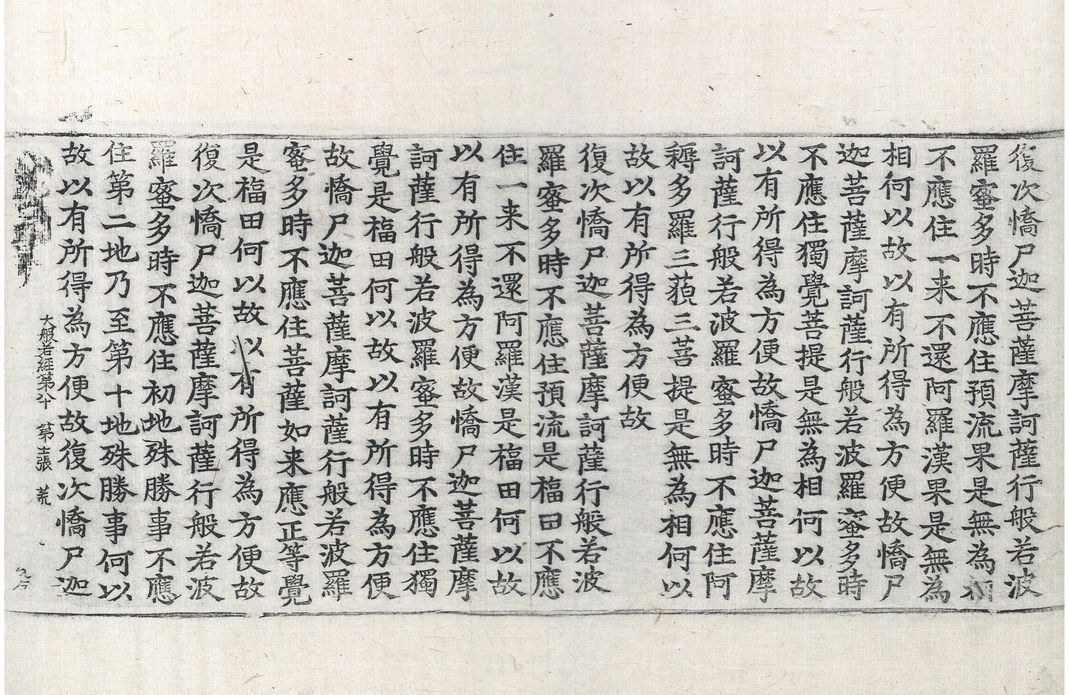 復次憍尸迦菩薩摩訶薩行般若波
羅蜜多時不應住預流果是無為相
不應住一来不還阿羅漢果是無為
相何以故以有所得為方便故憍尸
迦菩薩摩訶薩行般若波羅蜜多時
不應住獨覺菩提是無為相何以故
以有所得為方便故憍尸迦菩薩摩
訶薩行般若波羅蜜多時不應住阿
耨多羅三藐三菩提是無為相何以
故以有所得為方便故
復次憍尸迦菩薩摩訶薩行般若波
羅蜜多時不應住預流是福田不應
住一来不還阿羅漢是福田何以故
以有所得為方便故憍尸迦菩薩摩
訶薩行般若波羅蜜多時不應住獨
覺是福田何以故以有所得為方便
故憍尸迦菩薩摩訶薩行般若波羅
蜜多時不應住菩薩如来應正等覺
是福田何以故以有所得為方便故
復次憍尸迦菩薩摩訶薩行般若波
羅蜜多時不應住初地殊勝事不應
住第二地乃至第十地殊勝事何以
故以有所得為方便故復次憍尸迦
大般若經第八十 第十一張 荒